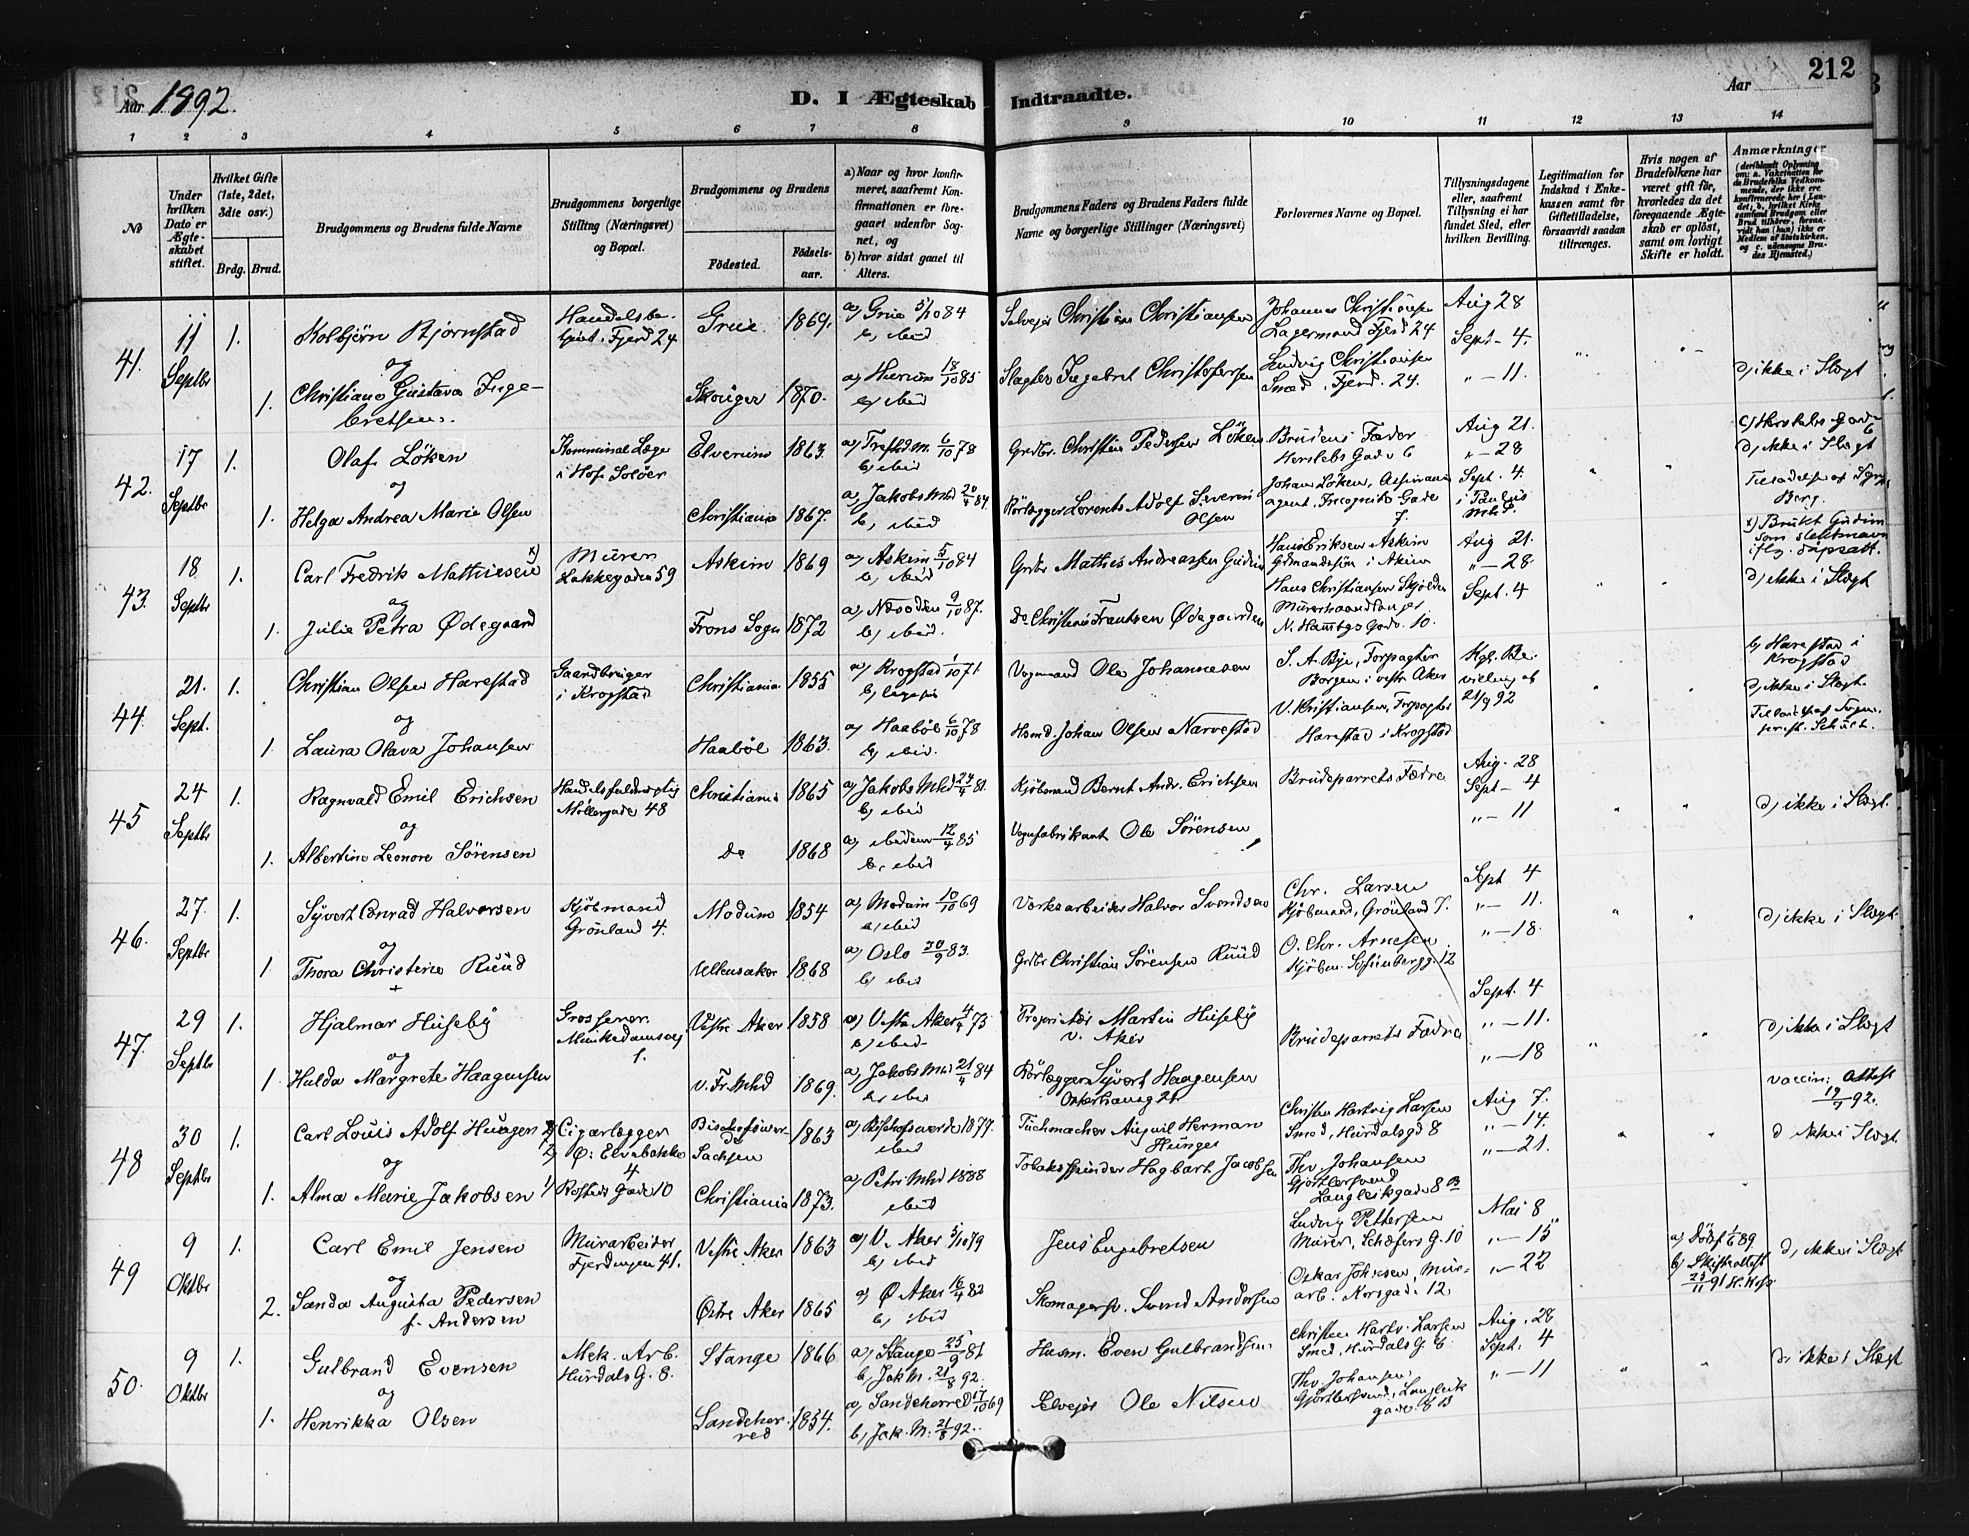 Aar 1892.
D. I Ægteskab Indtraadte.
Aar
212
1 2 3 4 5 6 7 8 9 10 11 12 13 14
No
Under hvilken Dato er Ægteskabet stiftet.
Hvilket Gifte (1ste, 2det, 3die osv.)
Brdg. Brud.
Brudgommens og Brudens fulde Navne
Brudgommens borgerlige Stilling (Næringsvei) og Bopæl.
Brudgommens og Brudens
Fødested. Fødselsaar.
a) Naar og hvor konfirmeret, saafremt Konfirmationen er foregaaet udenfor Sognet, og
b) hvor sidst gaaet til Alters.
Brudgommens Faders og Brudens Faders fulde Navne og borgerlige Stillinger (Næringsvei)
Forlovernes Navne og Bopæl.
Tillysningsdagene eller, saafremt Tillysning ei har fundet Sted, efter hvilken Bevilling.
Legitimation for Indskud i Enkekassen samt for Giftetilladelse, forsaavidt saadan tiltrænges.
Hvis nogen af Brudefolkene har været gift før, hvorledes da det foregaaende Ægteskab er opløst, samt om lovligt Skifte er holdt.
Anmærkninger
41. 11 Septbr 1. Kolbjörn Bjørnstad Fjerd 24 Grue 1869. a) Grue 5/10 84 b) ibid Selveier Christian Christiansen Johannes Christiansen Lagermand Fjerd 24 Aug 28 Sept - 4.
og
1. Christiane Gustava Ingebretsen. Skouger 1870. a) Hurum 18/10 85 b) ibid Slagter Ingebret Christofersen Ludvig Christiansen Smed, Fjerd. 24. " - 11. d) ikke i Slægt
42. 17 Septbr 1. Olaf Löken Kommunal Læge i Hof Solöer Elverum 1863. a) Trefldm. 6/10 78 b) ibid Grdbr. Christian Pedersen Löken Brudens Fader Herslebs Gade 6 Aug 21. " - 28 d) ikke i Slægt
og
1. Helga Andrea Marie Olsen Christiania 1867. a) Jakobs Mhd 20/4 84. b) ibid Rörlægger Lorents Adolf Severin Olsen Johan Löken, agent, Incognito Gade 7. Sept. 4. i Paulus Mhd.
43. 18 Septbr 1. Carl Fredrik Mathiesen x) Murer Lakkegaden 59 Askim 1869 a) Askim 5/10 84 b) ibid Grdbr Mathis Andreassen Gudim Hans Eriksen Askim Gdmandssön i Askim Aug 21. " - 28. x) Brukt Gudim som slektnavn iflg. dåpsatt. d) ikke i Slægt
og
1. Julie Petra Ødegaard Frons Sogn 1872 a) Næsodden 9/10 87. b) ibid. Do Christian Frantsen Ødegaarden Hans Christiansen Skjolden Murerhaandlanger N. Hambgs Gade. 10. Sept. 4
44. 21. Sept. 1. Christian Olsen Harestad Gaardbruger i Krogstad Christiania 1855 a) Krogstad 1/10 71 Vognmand Ole Johannesen S. A. Bye, Forpagter Borgen i vestre Aker Kgl. Bevilling af 21/9 92 b) Harestad i Krogstad d) ikke i Slægt.
og
1. Laura Olava Johansen Haabøl 1863. a) Haabøl 6/10 78 b) ibid. Hsmd. Johan Olsen Narvestad V. Kristiansen, Forpagter Harestad i Krogstad
45 24 Septbr 1. Ragnvald Emil Erichsen Handelsfuldmægtig Møllergade 48 Christiania 1865 a) Jakobs Mhd 24/4 81. b) ibid Kjöbmand Bernt Andr. Erichsen Brudeparrets Fædre Aug. 28 Sept - 4 " - 11 d) ikke i Slægt.
og
1. Albertine Leonore Sörensen do 1868 a) ibidem 12/4 85 b) ibid Vognfabrikant Ole Sörensen
46. 27. Septbr 1. Syvert Conrad Halvorsen Kjöbmand Grönland 4. Modum 1854 a) Modum 10/10 69 b) ibid Værksarbeider Halvor Svendsen Chr. Larsen Kjöbmand, Grönland 7. Sept 4 " - 11. " - 18. d) ikke i Slægt.
og
1. Thora Christine Ruud Ullensaker 1868 a) Oslo 30/9 83. b) ibid Grdbr Christian Sörensen Ruud O. Chr. Arnesen Kjöbm. Sofienbergg. 12
47. 29 Septbr 1. Hjalmar Huseby Grosserer Munkedamsvej 1. Vestre Aker 1858 a) Vestre Aker 4/4 73 b) ibid Proprietær Martin Huseby v. Aker Brudeparrets Fædre Sept. 4 " - 11. " - 18 d) ikke i Slægt
og
1. Hulda Margrete Haagensen v. Fr. Mhd 1869. a) Jakobs Mhd 21/4 84 b) ibid Rörlægger Syvert Haagensen Osterhausg 21 vaccin: Attest 19/7 92.
48 30 Septbr 1. Carl Louis Adolf Hunger Cigarlægger Ø: Elvebakke 4 Bischofswerda Sachsen 1863 a) Bischofswerda 1877. ibid Tuchmacher August Herman Hunger Christen Hartvig Larsen Smed, Hurdalsgd 8 Aug 7. " - 14. " - 21. d ikke i Slægt.
og
1. Alma Marie Jakobsen Rosteds Gade 10 Christiania 1873. a) Petri Mhd 1888 ibid Tobaksspinder Hagbart Jacobsen Thv. Johansen Gjörtlersvend Langleiksgade 8 B
49 9 Oktbr 1. Carl Emil Jensen Murarbeider Fjerdingen 41. Vestre Aker 1863 a) V. Aker 5/10 79 b) ibid Jens Engebretsen Ludvig Pettersen Murer, Schæfers G. 10 Mai 8 " - 15 " - 22 a) Død 1/6 89 b) Skifteattest d) ikke i Slægt
og
2. Sanda Augusta Pedersen f. Andersen Østre Aker 1865 a) Ø Aker 16/4 82 b) ibid Skomagersv. Svend Andersen Oskar Johnsen, Murarb. Korsgad. 12
50. 9 Oktbr 1. Gulbrand Evensen Mek. Arb. Hurdals G. 8. Stange 1866 a) Stange 25/9 81 b) Jak M. 21/8 92. Husm. Even Gulbrandsen Christen Hartv. Larsen Smed, Hurdals G 8 Aug. 28 Sept. 4 " - 11 d) ikke i Slægt
og
1. Henrikka Olsen Sandeherred 1854. a) Sandeherred 17/10 69 b) Jak. M. 21/8 92. Elveier Ole Nilsen Thv. Johansen, Gjörtlersvend, Langleiksgade 8 B